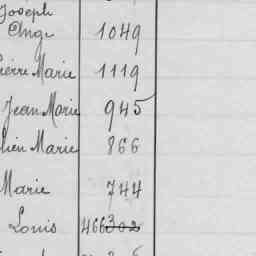 Joseph
Ange 1049
Pierre Marie 1119
Jean Marie 945
Marie 866
Marie 744
Louis 466